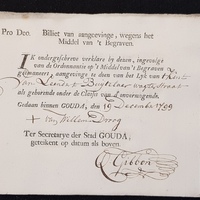 Pro Deo. Billiet van aangeevinge, wegens het
Middel van 't Begraven.
IK ondergeschreve verklare by deezen, ingevolge
van de Ordonnantie op 't Middel van 't Begraven
geëmaneert, aangevinge te doen van het Lyk van 't Kint
van Leendert
als gehorende onder de Classis van Onvermogende.
Gedaan binnen GOUDA, den 19 December 1799
+ van Willem
Ter Secretarye der Stad GOUDA,
geteikent op datum als boven.
Gibbon